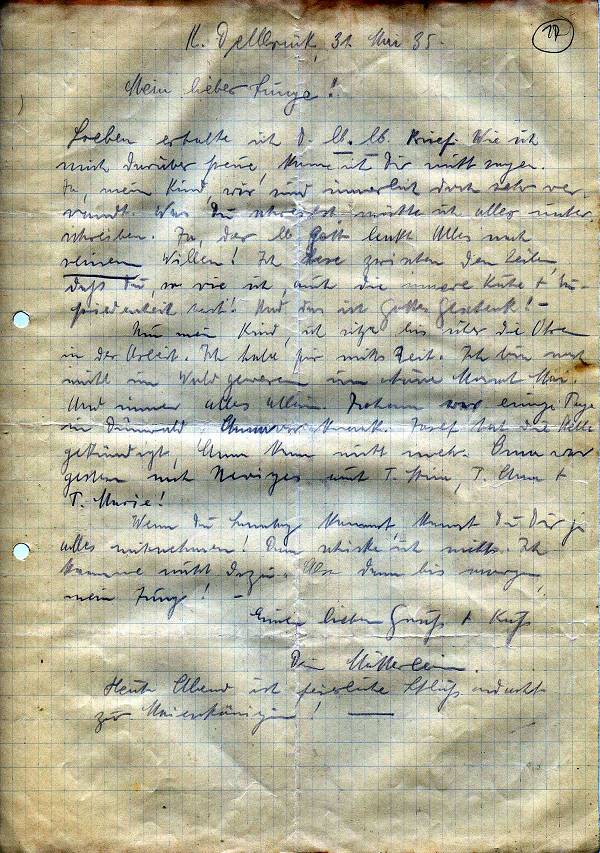 K. Dellbrück, 31. Mai 35.
17
Mein lieber Junge!
Soeben erhalte ich d. lb. lb. Brief. Wie ich
mich darüber freue, kann ich Dir nicht sagen.
Ja, mein Kind, wir sind innerlich doch sehr ver-
wandt. Was Du schreibst, möchte ich alles unter-
schreiben. Ja, der lb. Gott lenkt Alles nach
seinem Willen! Ich lese zwischen den Zeilen,
daß Du, so wie ich, auch die innere Ruhe + Zu-
friedenheit hast! Und das ist Gottes Geschenk! –
Nun mein Kind, ich sitze bis über die Ohren
in der Arbeit. Ich habe für nichts Zeit. Ich bin noch
nicht im Wald gewesen im Monat Mai.
Und immer alles allein. Johann war einige Tage
in Dünnwald. Anna war krank. Josef hat die Stelle
gekündigt, Anna kann nicht mehr. Anna war
gestern nach Neviges mit T. Stina, T. Anna +
T. Marie!
Wenn Du Sonntag kommst kannst Du Dir ja
alles mitnehmen! Dann schicke ich nichts. Ich
komme nicht dazu. Also dann bis morgen,
mein Junge! –
Einen lieben Gruß + Kuß
Dein Mütterlein.
Heute Abend ist feierliche Schlußandacht
zur Maienkönigin! —